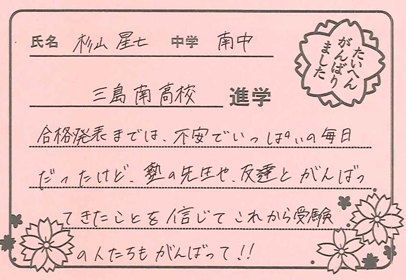 氏名 杉山 星七 中学 南中
たいへん
がんばり
ました
三島南高校 進学
合格発表までは、不安でいっぱいの毎日
だったけど、塾の先生や、友達とがんばっ
てきたことを信じてこれから受験
の人たちもがんばって!!